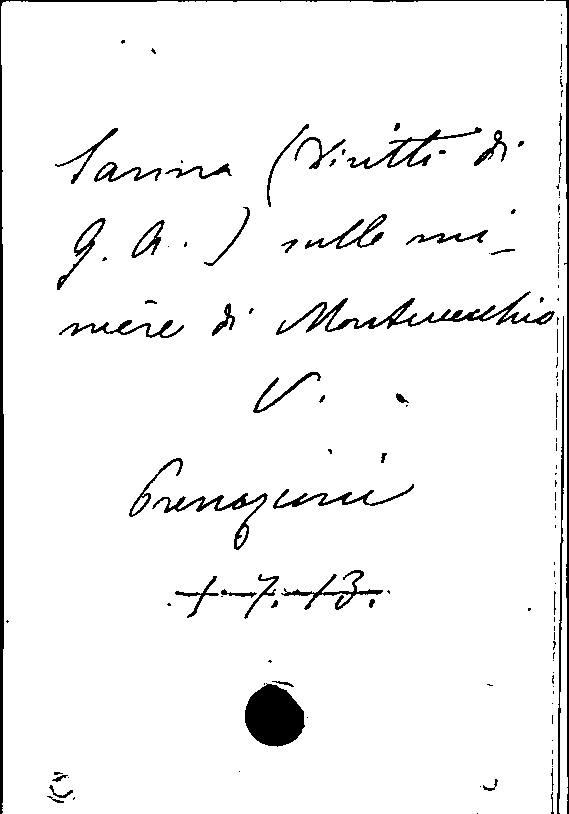 Sanna (Diritti di
G. A.) sulle mi-
niere di Montevecchio
V.
1.7.13.